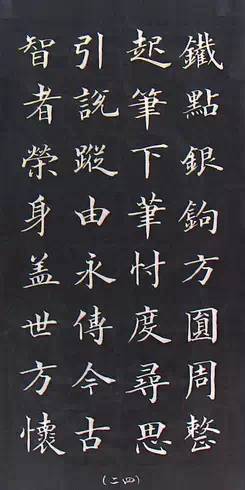 鐵點銀鉤方圓周整
起筆下筆忖度尋思
引說蹤由永傳今古
智者榮身盖世方懷
(二四)